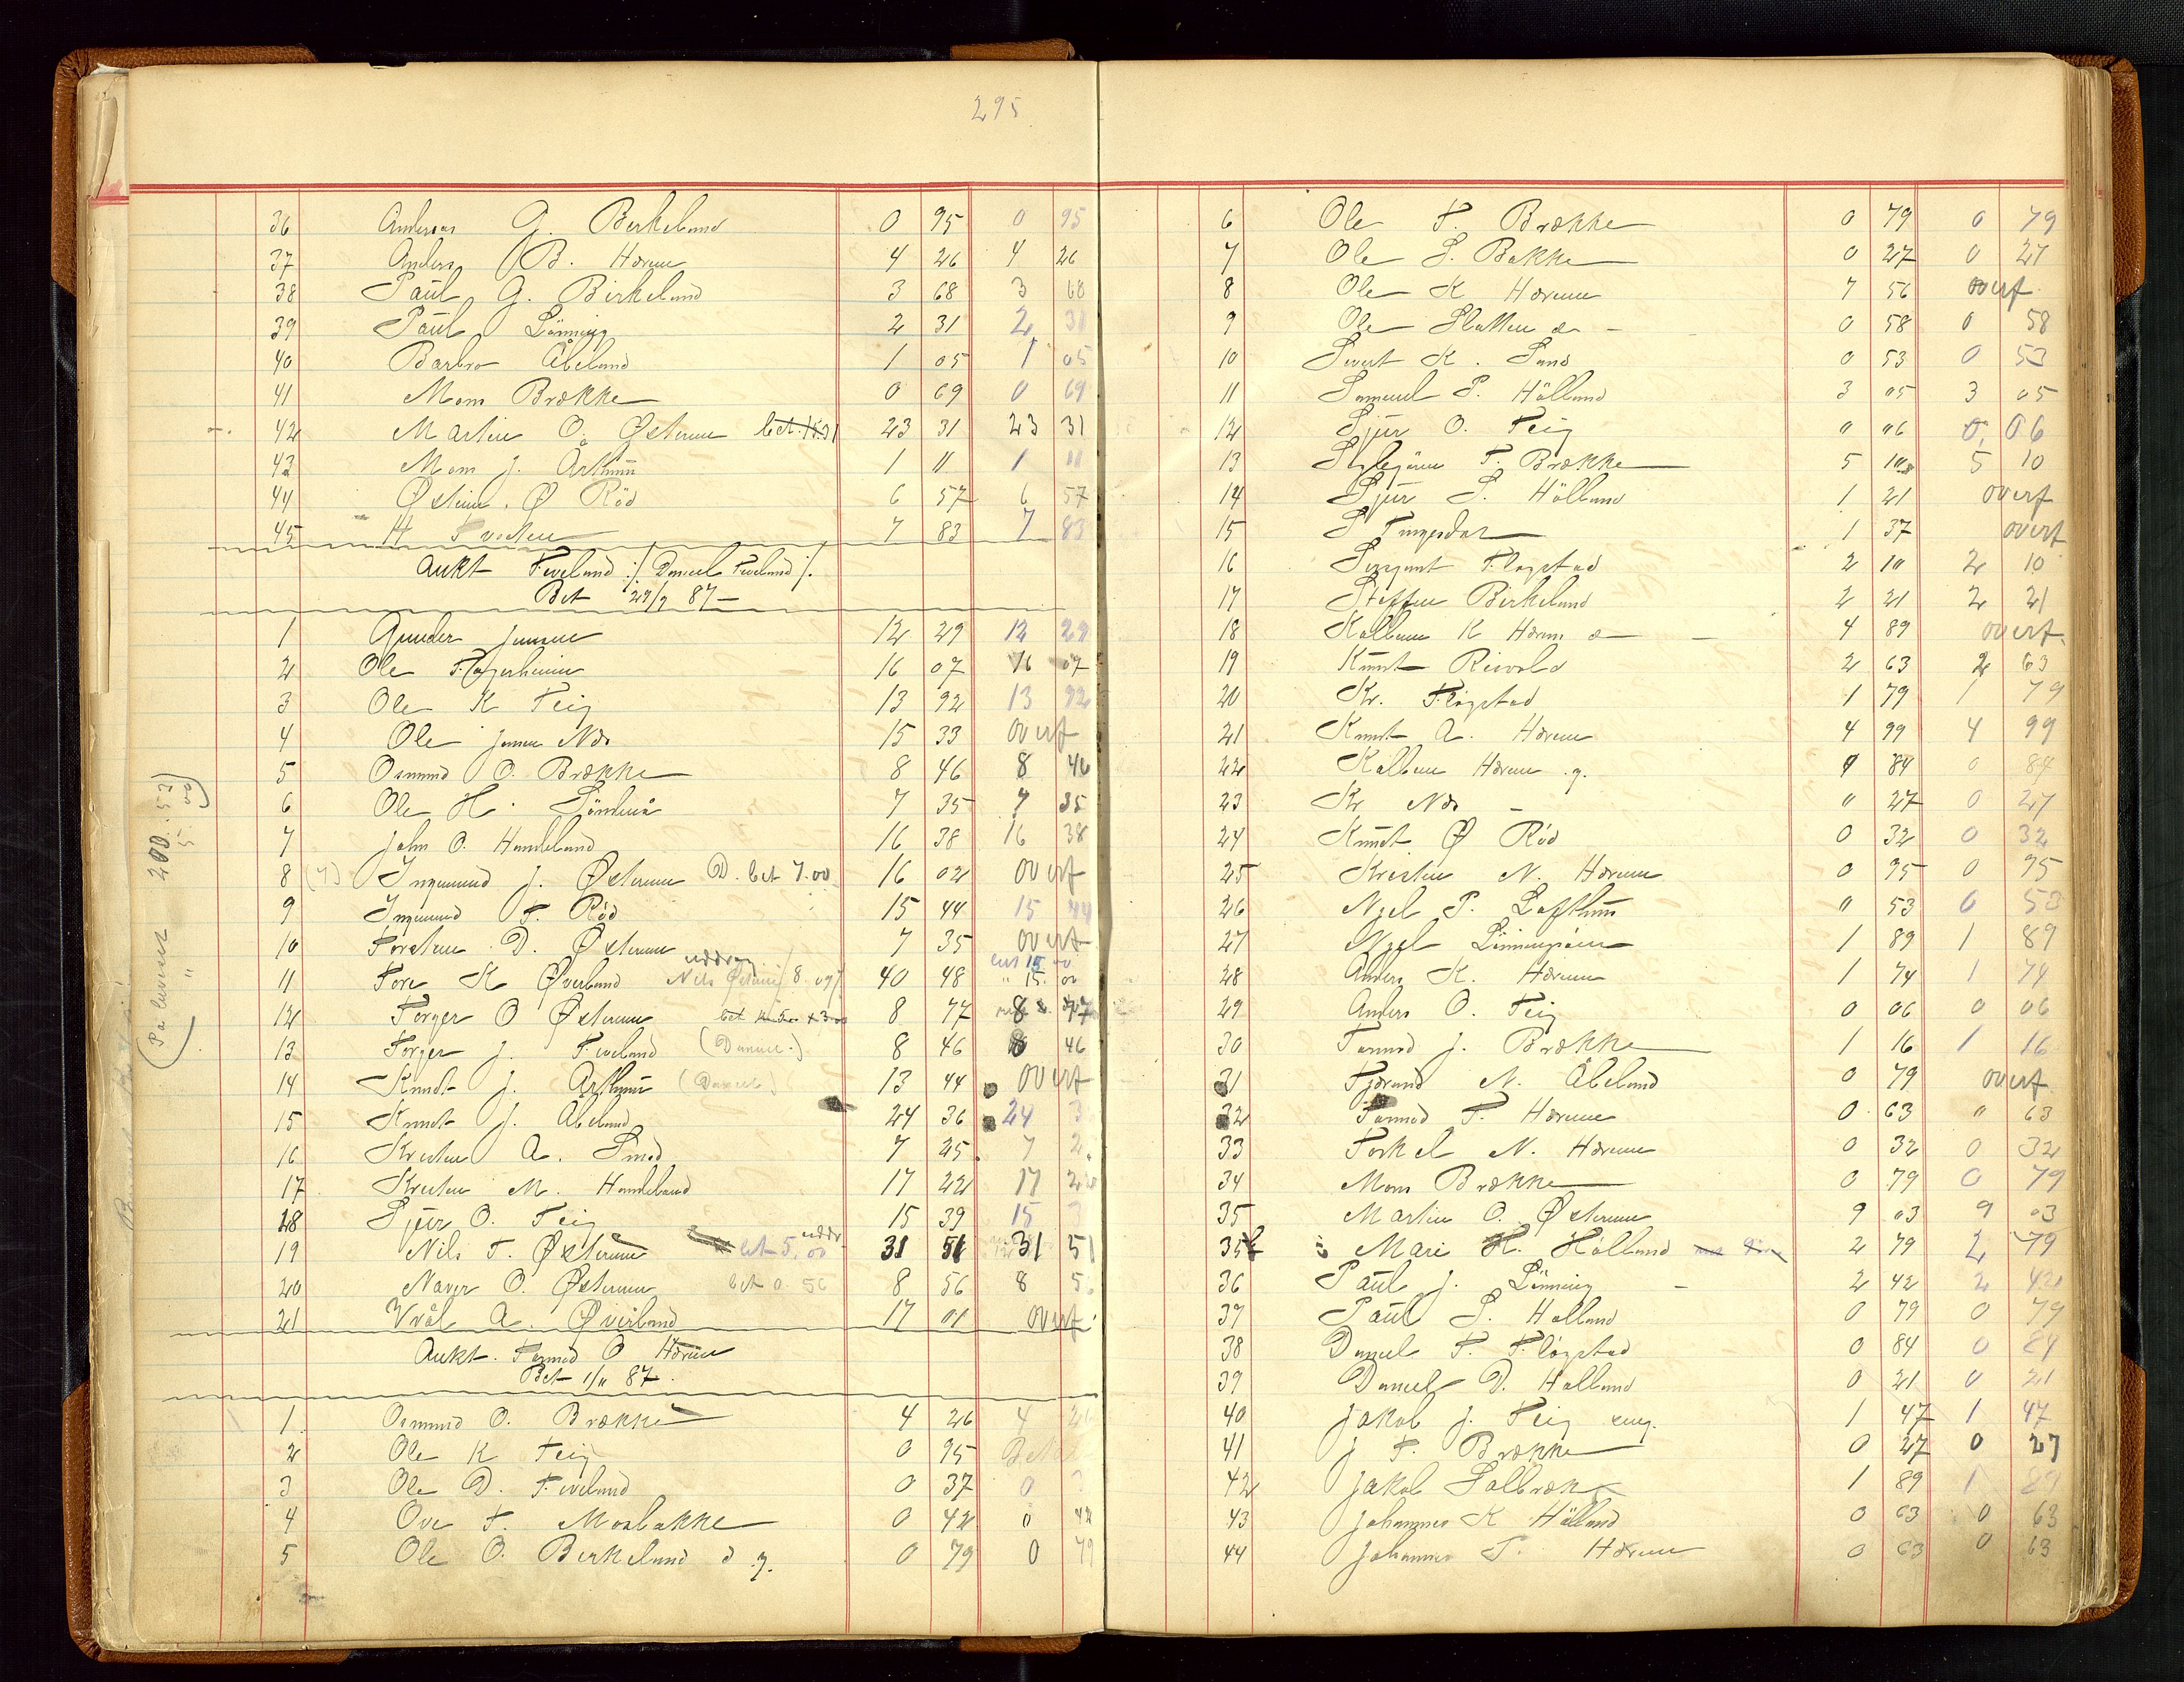 295
36 Anders G. Birkeland 0 95 0 95
37 Anders B. Hærum 4 26 4 26
38 Paul G. Birkeland 3 68 3 68
39 Paul Lönning 2 31 2 31
40 Barbro Åbeland 1 05 1 05
41 Mons Brække 0 69 0 69
42 Martin O. Østerm 23 31 23 31
43 Mons J. Årthun 1 11 1 11
44 Østein Ø Röd 6 57 6 57
45 H Tveten 7 83 7 83
Aukt Tveland :/ Daniel Tveland /.
Bet 29/9 87 —
1 Gunder Jensen 12 29 12 29
2 Ole Fagerheim 16 07 16 07
3 Ole K Teig 13 92 13 92
4 Ole Jensen Næs 15 33 overf
5 Osmund O. Brække 8 46 8 46
6 Ole H. Söndenå 7 35 7 35
7 John O. Handeland 16 38 16 38
8 (7) Ingmund J. Østerm D. bet 7.00 16 02 overf
9 Ingmund T. Röd 15 44 15 44
10 Torsten D. Østerm 7 35 overf
11 Tore K Øverland Nils Østerm 8.09 40 48 " 15. 00
12 Torger O Østerm 8 77 8 77
13 Torger J. Tveland (Daniel.) 8 46 8 46
14 Knudt J. Årthun (Daniel) 13 44 overf
15 Knudt J. Åbeland 24 36 24 3
16 Kristen A. Smed 7 25 7 2
17 Kristen M. Handeland 17 22 17 22
18 Sjur O. Teig 15 39 15 3
19 Nils T. Østerm bet 5,00 31 51 31 51
20 Naver O. Østerm bet 0.56 8 56 8 5
21 Vrål A. Øverland 17 01 overf
Aukt. Tormod O Hærum
Bet 1/11 87.
1. Osmund O. Brække 4 26 4 26
2 Ole K Teig 0 95 Betalt
3 Ole D. Tveland 0 37 0 3
4 Ove T. Mosbakke 0 42 0 42
5 Ole O. Birkeland d. y. 0 79 0 79
6 Ole T. Brække 0 79 0 79
7 Ole S. Bakke 0 27 0 27
8 Ole K Hærum 7 56 overf.
9 Ole Slatten 0 58 0 58
10 Sivert K. Sand 0 53 0 53
11 Samuel P. Hålland 3 05 3 05
12 Sjur O. Teig 0 06 0, 06
13 T. Brække 5 10 5 10
14 Sjur S. Hålland 1 21 overf
15 S Tungesdar 1 37 overf
16 Sergant Flogstad 2 10 2 10
17 Steffen Birkeland 2 21 2 21
18 Kolben K Hærum 4 89 overf.
19 Knut Risvold 2 63 2 63
20 Kr. Flogstad 1 79 1 79
21 Knut A. Hærum 4 99 4 99
22 Kolben Hærum y. 0 84 0 84
23 Kr Næs — 0 27 0 27
24 Knudt Ø Röd 0 32 0 32
25 Kristen N. Hærum 0 95 0 95
26 Njel P. Lofthun 0 53 0 53
27 Njel 1 89 1 89
28 Anders K. Hærum 1 74 1 74
29 Anders O. Teig 0 06 0 06
30 Tormod J. Brække 1 16 1 16
31 Tjærand N. Åbeland 0 79 overf
32 Tormod T. Hærum 0 63 " 63
33 Torkel N. Hærum 0 32 0 32
34 Mons Brække 0 79 0 79
35 Martin O. Østerm 9 03 9 03
35b Mari H. Hålland 2 79 2 79
36 Paul J. Lönning 2 42 2 42
37 Paul S. Halland 0 79 0 79
38 Daniel T. Flogstad 0 84 0 84
39 Daniel D. Halland 0 21 0 21
40 Jakob J. Teig 1 47 1 47
41 J T. Brække 0 27 0 27
42 Jakob Solbræk 1 89 1 89
43 Johannes K Hålland 0 63 0 63
44 Johannes T. Hærum 0 63 0 63